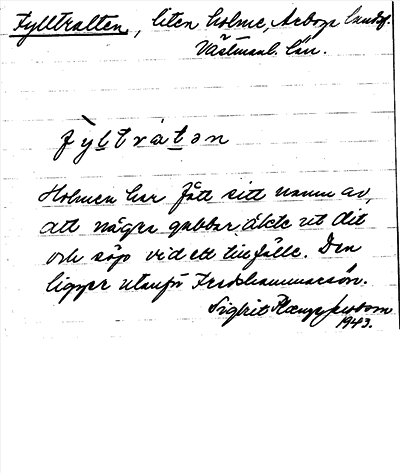 Fylltratten, liten holme, Arboga landsf.
Västmanl. län.
fỳltràtən
Holmen har fått sitt namn av,
att några gubbar åkte ut dit
och söp vid ett tillfälle. Den
ligger utanför Fredshammarsön.
Sigbrit
1943.